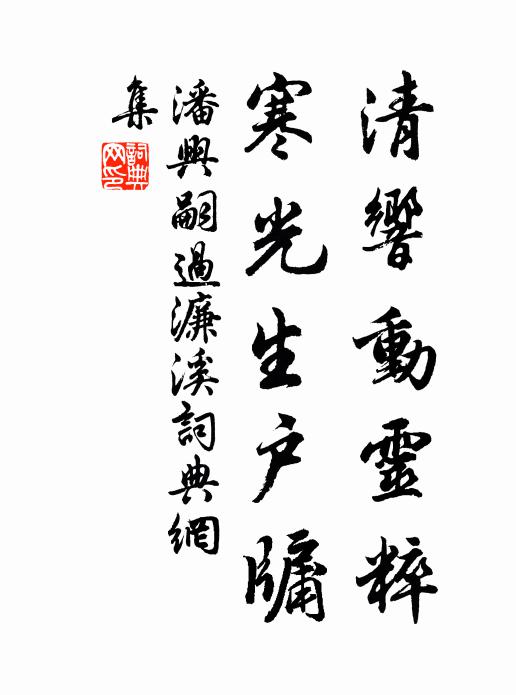 清響動靈粹
寒光生户牗
潘興嗣過濂溪詞典網
集
詞典
网印